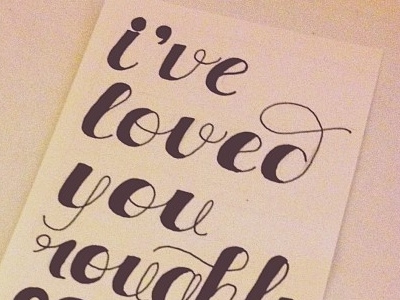 i've
loved
you
roughly